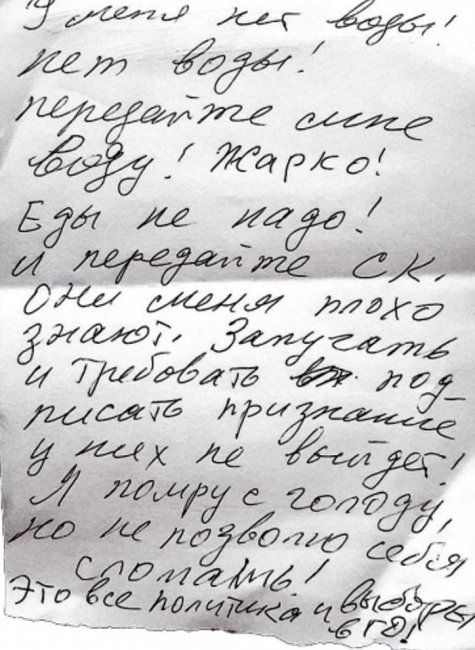 У меня нет воды!
нет воды!
передайте мне
воду! Жарко!
Еды не надо!
и передайте СК,
они меня плохо
знают. Запугать
и требовать под-
писать признание
у них не выйдет!
Я помру с голоду,
но не позволю себя
сломать!
Это все политика и выборы
в ГД!